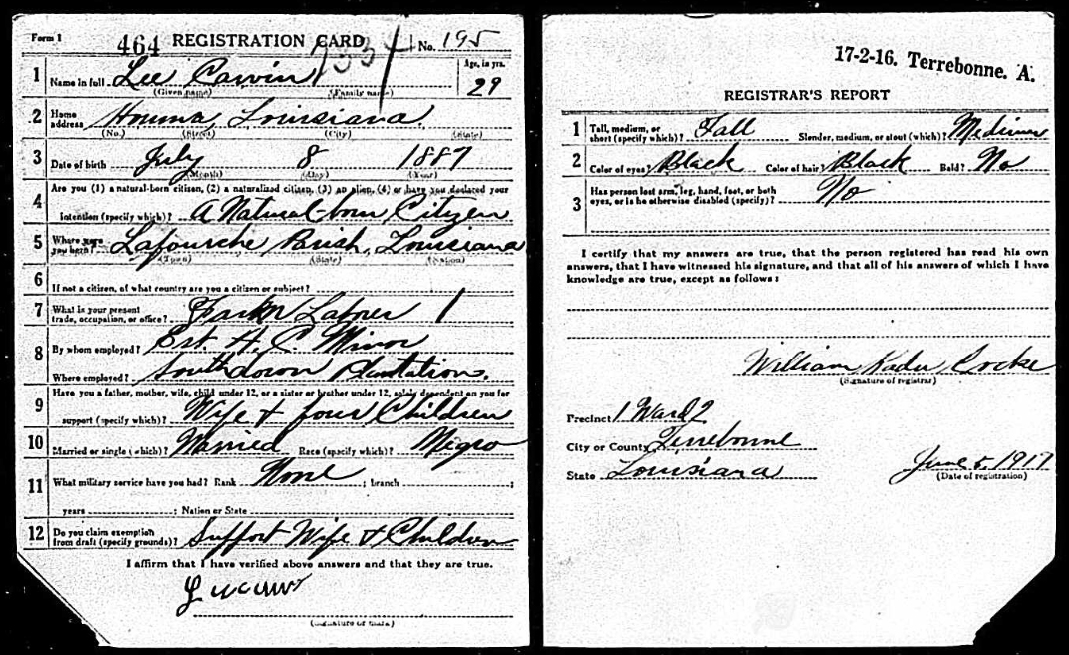 Form 1
464 REGISTRATION CARD No. 195
1 Name in full Lee Carvin Age, in yrs. 29
(Given name) (Family name)
2 Home address Houma, Louisiana
(No.) (Street) (City) (State)
3 Date of birth July 8 1887
(Month) (Day) (Year)
4 Are you (1) a natural-born citizen, (2) a naturalized citizen, (3) an alien, (4) or have you declared your
intention (specify which)? A Natural-born Citizen
5 Where were you born? Lafourche Parish, Louisiana
(Town) (State) (Nation)
6 If not a citizen, of what country are you a citizen or subject?
7 What is your present trade, occupation, or office? Farm Laborer 1
8 By whom employed? Est. H. C. Minor
Where employed? Southdown Plantation.
9 Have you a father, mother, wife, child under 12, or a sister or brother under 12, solely dependent on you for
support (specify which)? Wife & four Children
10 Married or single (which)? Married Race (specify which)? Negro
11 What military service have you had? Rank None ; branch ;
years ; Nation or State
12 Do you claim exemption from draft (specify grounds)? Support Wife & Children
I affirm that I have verified above answers and that they are true.
(Signature or mark)
17-2-16. Terrebonne. A.
REGISTRAR'S REPORT
1 Tall, medium, or short (specify which)? Tall Slender, medium, or stout (which)? Medium
2 Color of eyes? Black Color of hair? Black Bald? No
3 Has person lost arm, leg, hand, foot, or both
eyes, or is he otherwise disabled (specify)? No
I certify that my answers are true, that the person registered has read his own
answers, that I have witnessed his signature, and that all of his answers of which I have
knowledge are true, except as follows:
William Cocke
(Signature of registrar)
Precinct 1 Ward 2
City or County Terrebonne
State Louisiana June 5, 1917
(Date of registration)